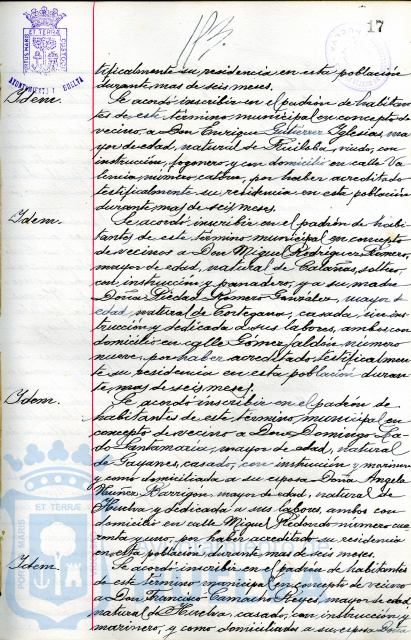 17
PORTUS MARIS ET TERRÆ CUSTODIA
AYUNTAMIENTO DE HUELVA
tificalmente su residencia en esta población
durante mas de seis meses.
Idem. Se acordó inscribir en el padrón de habitan-
tes de este término municipal en concepto de
vecino, a Don Enrique Gutiérrez Iglesias, ma-
yor de edad, natural de, viudo, con
instrucción, fogonero, y con domicilio en calle Va-
lencia número catorce, por haber acreditado
testificalmente su residencia en esta población
durante mas de seis meses.
Idem. Se acordó inscribir en el padrón de habi-
tantes de este término municipal en concepto
de vecinos a Don Miguel Rodríguez Romero,
mayor de edad, natural de Calañas, soltero,
con instrucción y panadero, y a su madre
Doña Piedad Romero González, mayor de
edad, natural de Cortegana, casada, sin ins-
trucción y dedicada a sus labores, ambos con
domicilio en calle Gómez Jaldón número
nueve, por haber acreditado testificalmen-
te su residencia en esta población duran-
te mas de seis meses.
Idem. Se acordó inscribir en el padrón de
habitantes de este término municipal en
concepto de vecino a Don Domingo
Santamaria, mayor de edad, natural
de Gayanes, casado, con instrucción y marinero
y como domiciliada a su esposa Doña Angela
Nuñez Barrigon, mayor de edad, natural de
Huelva y dedicada a sus labores, ambos con
domicilio en calle Miguel Redondo número cua-
renta y uno, por haber acreditado su residencia
en esta población durante mas de seis meses.
Idem. Se acordó inscribir en el padrón de habitantes
de este término municipal en concepto de vecino
a Don Francisco Camacho Reyes, mayor de edad,
natural de Huelva, casado, con instrucción y
marinero, y como domiciliada a su esposa Do-